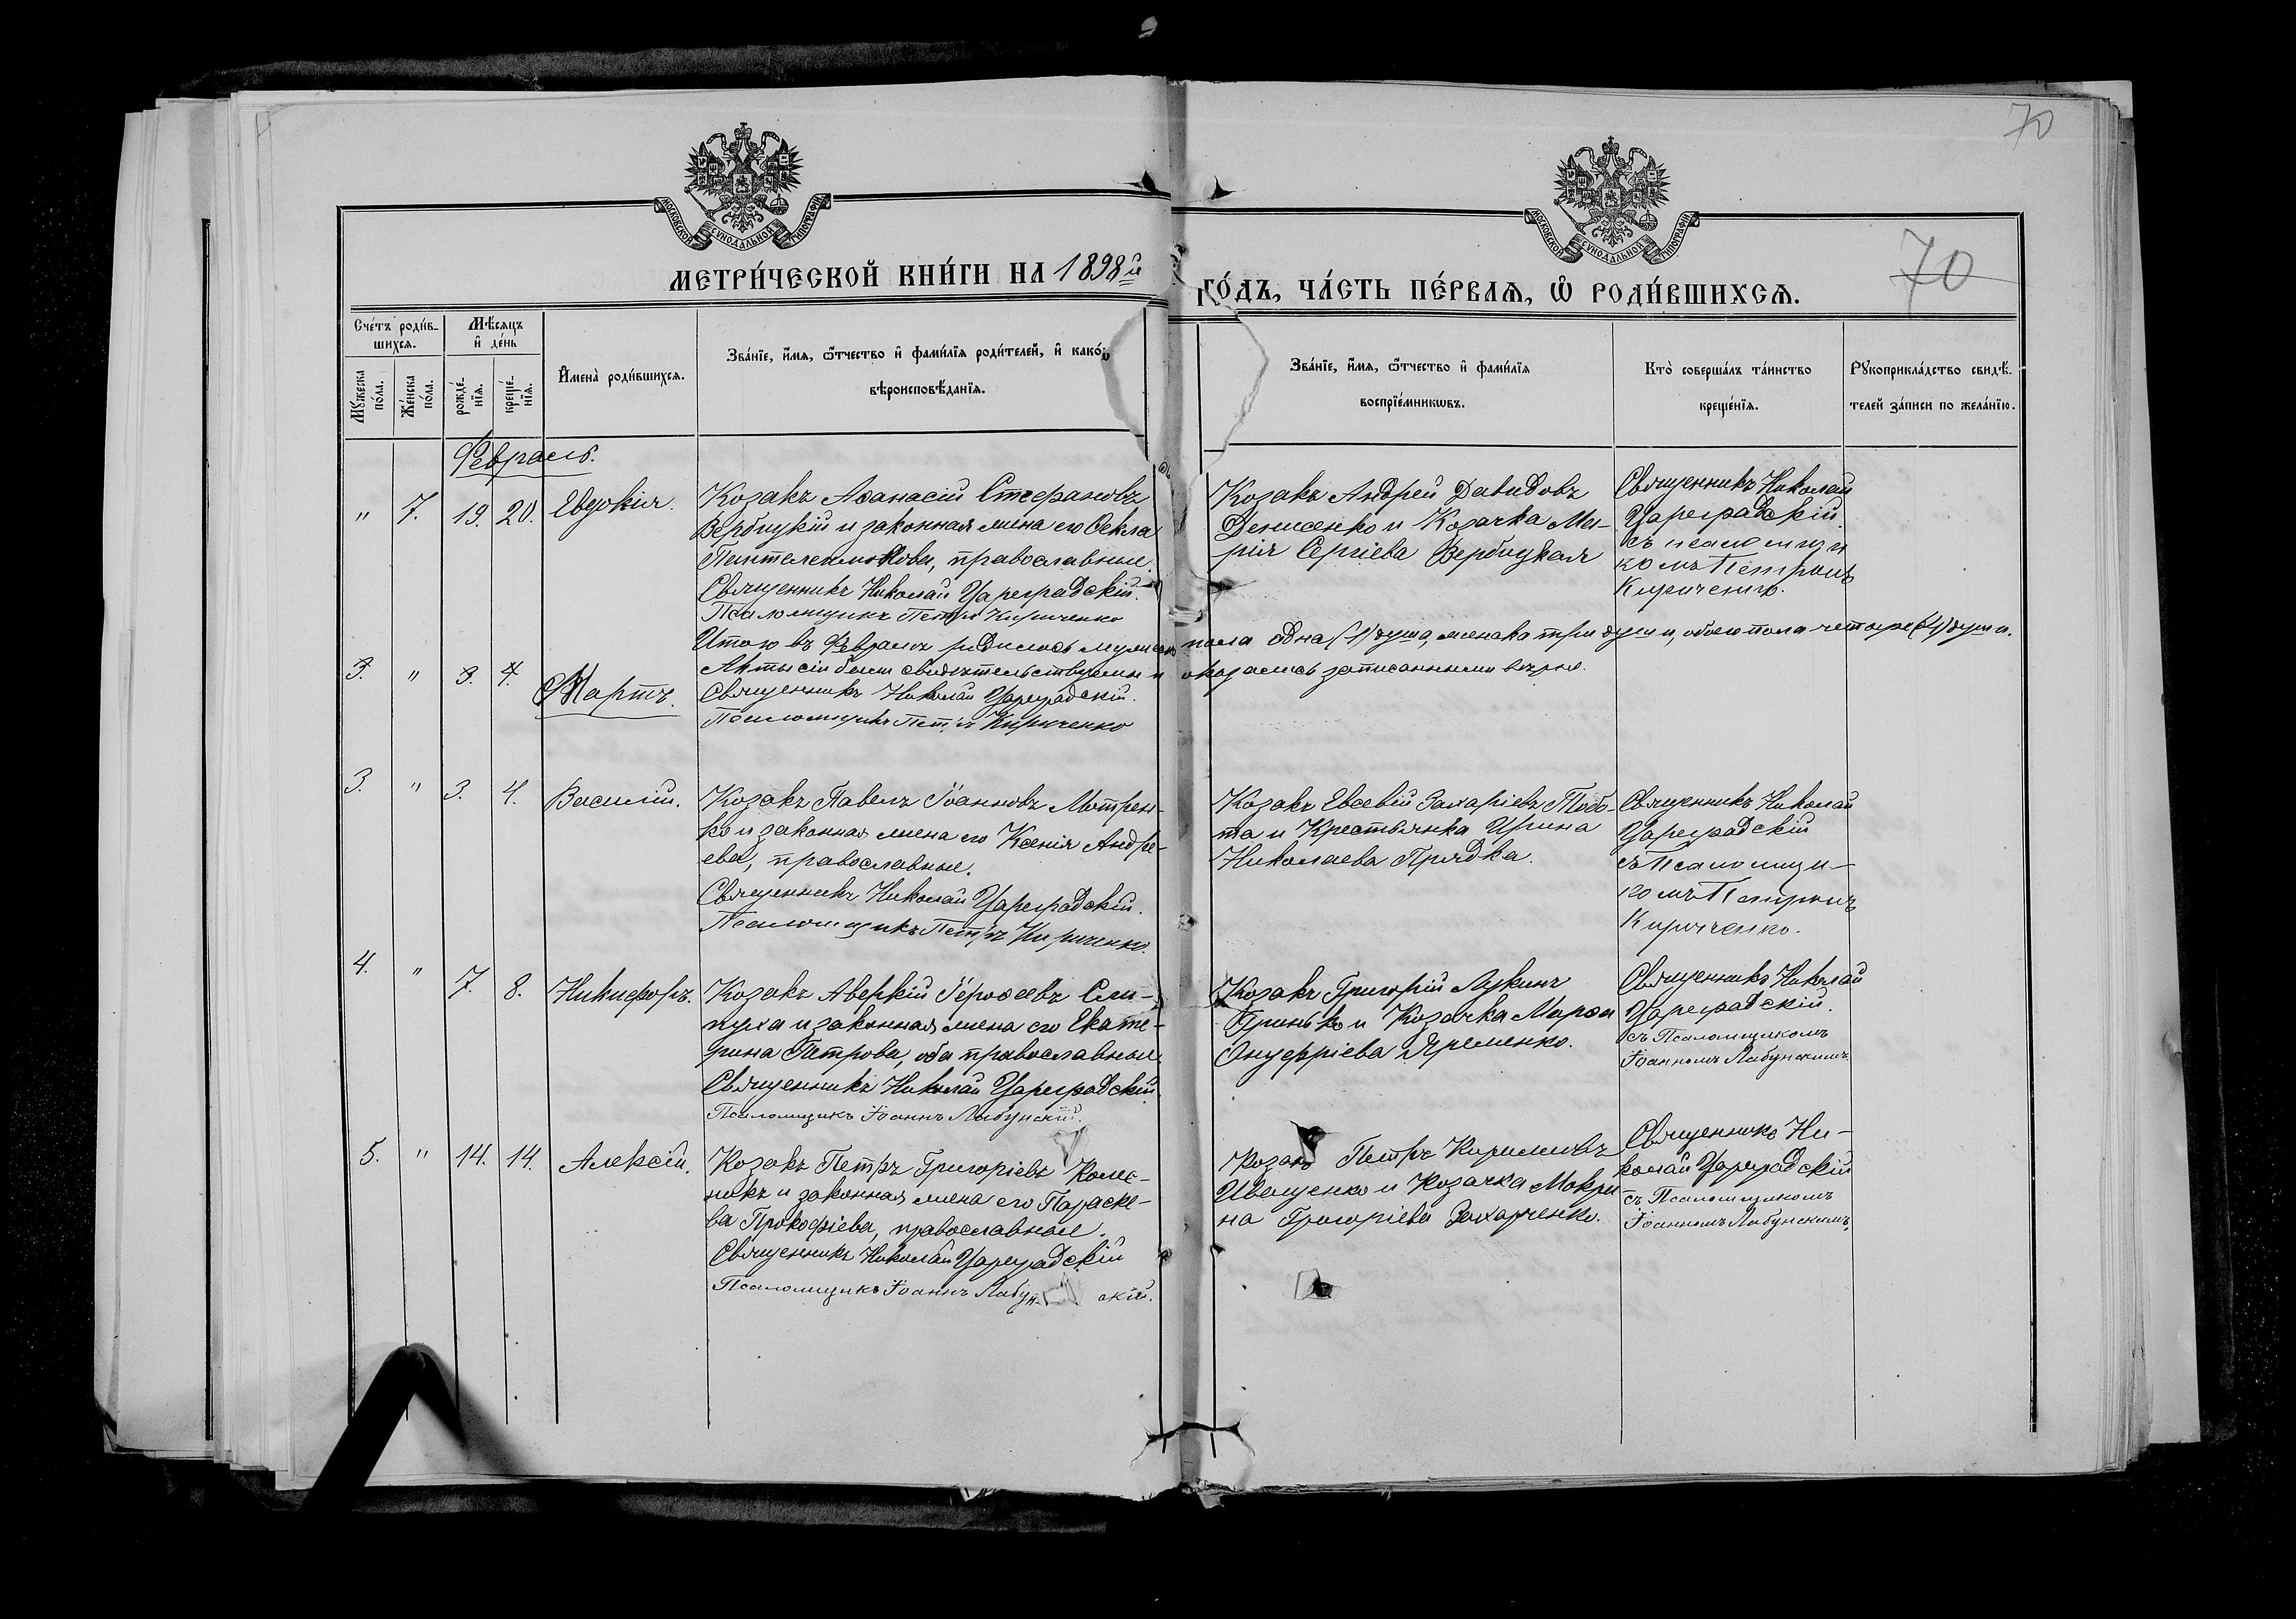 70
МОСКОВСКОЙ СѴНОДАЛЬНОЙ ТИПОГРАФІИ
МОСКОВСКОЙ СѴНОДАЛЬНОЙ ТИПОГРАФІИ
МЕТРИ́ЧЕСКОЙ КНИ́ГИ НА 1898й
ГО́ДЪ, ЧА́СТЬ ПЕ́РВАѦ, Ѽ РОДИ́ВШИХСѦ.
70
Сче́тъ роди́в-
шихся.
Мѣ́сяцъ
и де́нь
Му́жеска
по́ла.
Же́нска
по́ла.
рожде́-
нїя.
креще́-
нїя.
И҆мена̀ роди́вшихся.
Зва́нїе, и҆́мя, ѻ҆́тчество и҆ фами́лїя роди́телей, и҆ како́
вѣроисповѣ́данїя.
Зва́нїе, и҆́мя, ѻ҆́тчество и҆ фами́лїя
воспрїе́мникѡвъ.
Кто̀ соверша́лъ та́инство
креще́нїя.
Рꙋкоприкла́дство свидѣ́-
телей за́писи по жела́нїю.
Февраль.
" 7. 19. 20. Евдокія.
Козакъ Аѳанасій Стефановъ
Вербицкій и законная жена его Ѳекла
Пантелеимонова, православные.
Священникъ Николай Цареградскій.
Псаломщикъ Петръ Кириченко
Козакъ Андрей Давидовъ
Денисенко и Козачка Ма-
рія Сергіева Вербицкая
Священникъ Николай
Цареградскій.
съ псаломщи
комъ Петромъ
Кириченко.
Итого въ Февралѣ родилось мужеска пола одна (1) душа, женска три души, обоего пола четыре (4) души.
Акты сіи были свидѣтельствуемы и оказались записанными вѣрно.
3. " 3. 4.
Мартъ.
Священникъ Николай Цареградскій.
Псаломщикъ Петръ Кириченко
3. " 3. 4. Василій.
Козакъ Павелъ Іоанновъ Мотрен-
ко и законная жена его Ксенія Андре-
ева, православные.
Священникъ Николай Цареградскій.
Псаломщикъ Петръ Кириченко.
Козакъ Евсевій Захаріевъ
та и Крестьянка Ирина
Николаева Прядка.
Священникъ Николай
Цареградскій
съ Псаломщи-
комъ Петромъ
Кириченко.
4. " 7. 8. Никифоръ.
Козакъ Аверкій Іероѳеевъ
и законная жена его Екате-
рина Петрова, оба православные
Священникъ Николай Цареградскій.
Псаломщикъ Іоаннъ Лабунскій.
Козакъ Григорій Лукинъ
Гринько и Козачка Марѳа
Онуфріева Яременко.
Священникъ Николай
Цареградскій.
съ Псаломщикомъ
Іоанномъ Лабунскимъ.
5. " 14. 14. Алексій.
Козакъ Петръ Григоріевъ Колес-
никъ и законная жена его Параске-
ва Прокофіева, православные.
Священникъ Николай Цареградскій
Псаломщикъ Іоаннъ Лабун скій.
Козакъ Петръ Кирилловъ
Иващенко и Козачка Макри-
на Григоріева Захарченко.
Священникъ Ни-
колай Цареградскій
съ Псаломщикомъ
Іоанномъ Лабунскимъ.